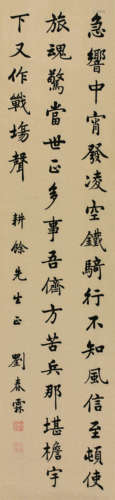 急響中宵發凌空鐵騎行不知風信至頓使
旅魂驚當世正多事吾儕方苦兵那堪檐宇
下又作戰場聲
耕餘先生正
劉春霖